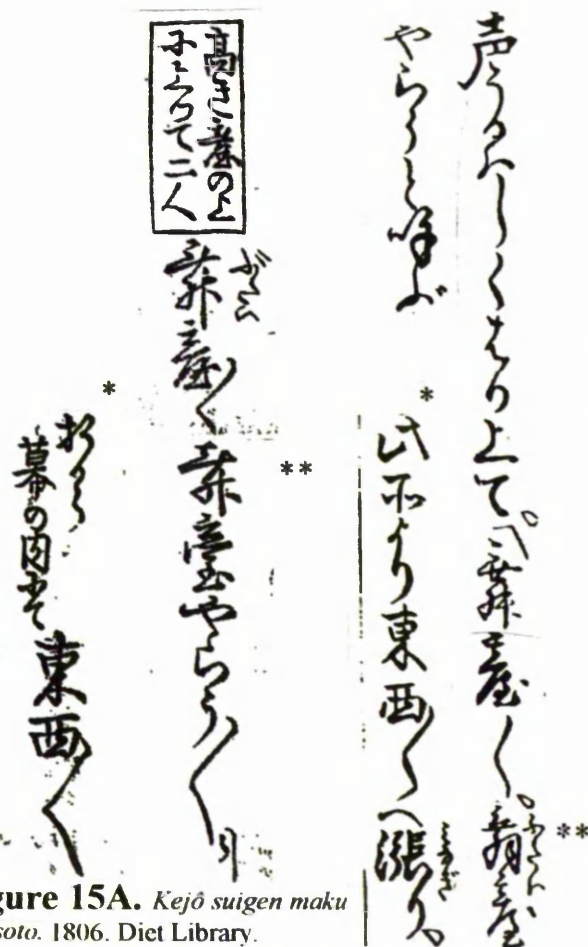 声うるはしくはり上て
舞臺〱
舞臺
**
やらうと呼ぶ
*
此所より東西〱へ漲り
高き臺の上
て二人
ぶたい
舞臺〱
舞臺やらう〱
引
**
*
幕の内にて
東西〱
gure 15A. Kejô suigen maku
soto. 1806. Diet Library.